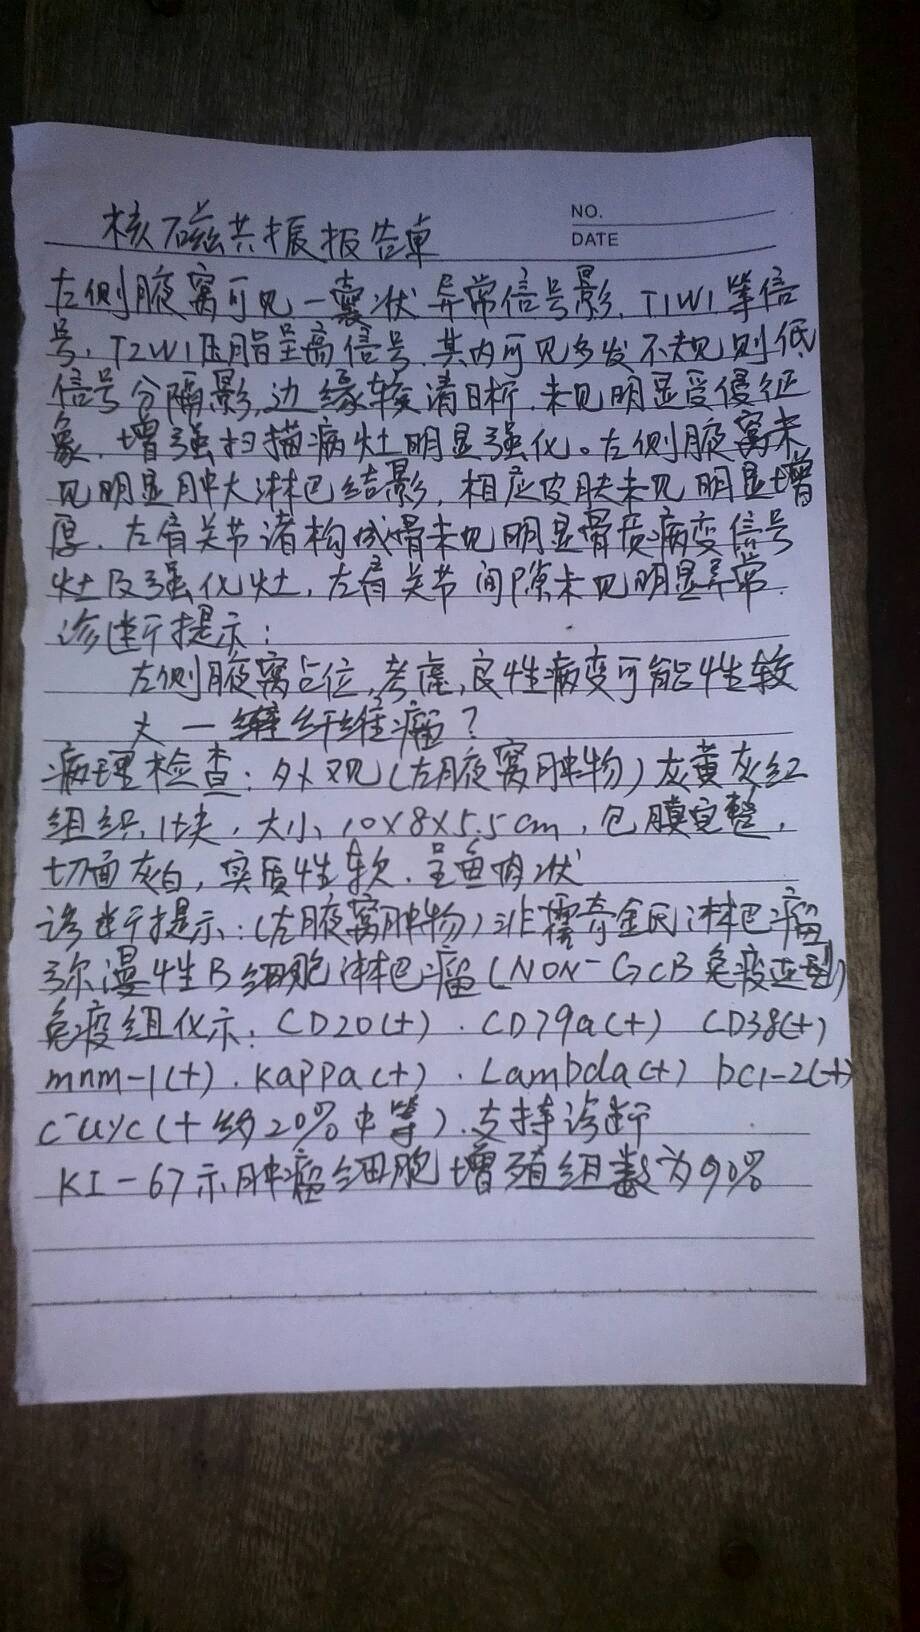 核磁共振报告单
NO.
DATE
左侧腋窝可见一囊状异常信号影，T1W1等信
号，T2W1压脂呈高信号.其内可见多发不规则低
信号分隔影，边缘较清晰.未见明显受侵征
象，增强扫描病灶明显强化。左侧腋窝未
见明显肿大淋巴结影，相应皮肤未见明显增
厚.左肩关节诸构成骨未见明显骨质病变信号
灶及强化灶，左肩关节间隙未见明显异常.
诊断提示：
左侧腋窝占位,考虑,良性病变可能性较
大一纤维瘤？
病理检查：外观(左腋窝肿物)灰黄灰红
组织1块，大小10X8X5.5cm，包膜完整，
切面灰白，实质性软.呈鱼肉状
诊断提示：(左腋窝肿物)非霍奇金氏淋巴瘤
弥漫性B细胞淋巴瘤(NON-GCB免疫亚型)
免疫组化示：CD20(+).CD79a(+) CD38(+)
mnm-1(+).Kappa(+).Lambda(+) bc1-2(+)
(+约20%中等).支持诊断
KI-67示肿瘤细胞增殖组数为90%